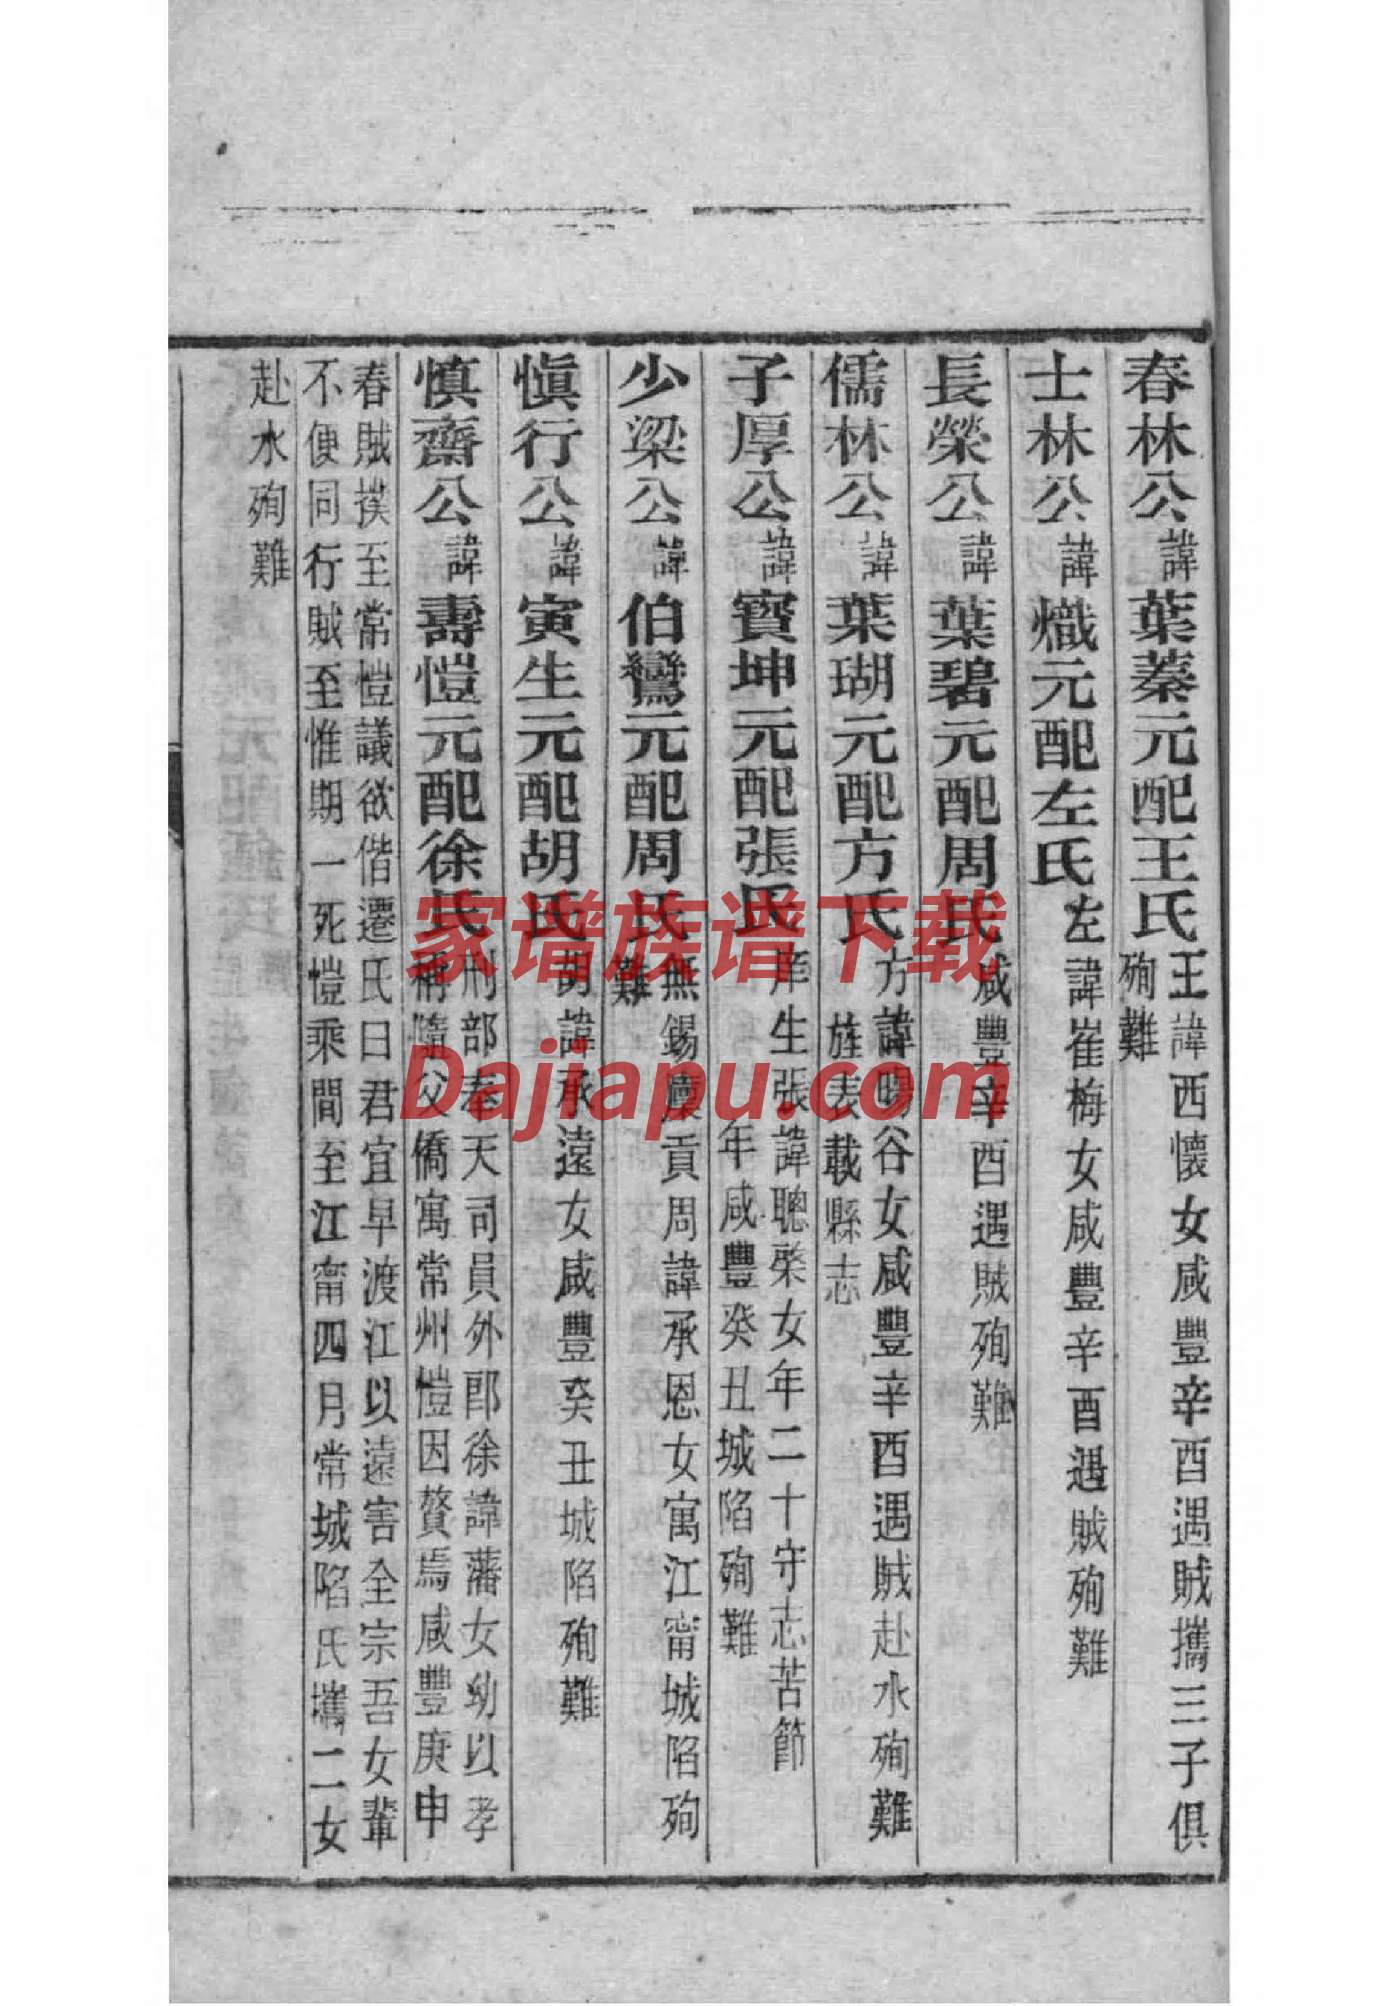 春林公諱葉蓁元配王氏王諱西懷女咸豐辛酉遇賊攜三子俱
殉難
士林公諱熾元配左氏左諱崔梅女咸豐辛酉遇賊殉難
長榮公諱葉碧元配周氏咸豐辛酉遇賊殉難
儒林公諱葉瑚元配方氏方諱暘谷女咸豐辛酉遇賊赴水殉難
旌表載縣志
子厚公諱寶坤元配張氏庠生張諱聰榮女年二十守志苦節
年咸豐癸丑城陷殉難
少梁公諱伯鸞元配周氏無錫廩貢周諱承恩女寓江甯城陷殉
難
愼行公諱寅生元配胡氏胡諱承遠女咸豐癸丑城陷殉難
慎齋公諱壽愷元配徐氏刑部奉天司員外郎徐諱藩女幼以孝
稱隨父僑寓常州愷因贅焉咸豐庚申
春賊撲至常愷議欲偕遷氏曰君宜早渡江以遠害全宗吾女輩
不便同行賊至惟期一死愷乘間至江甯四月常城陷氏攜二女
赴水殉難
家谱族谱下载
Dajiapu.com